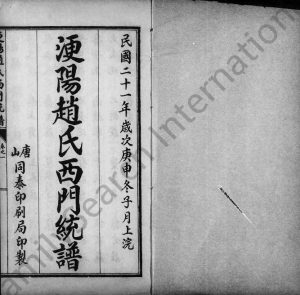 民國二十一年歲次庚申冬子月上浣
浭陽趙氏西門統譜
唐山同泰印刷局印製